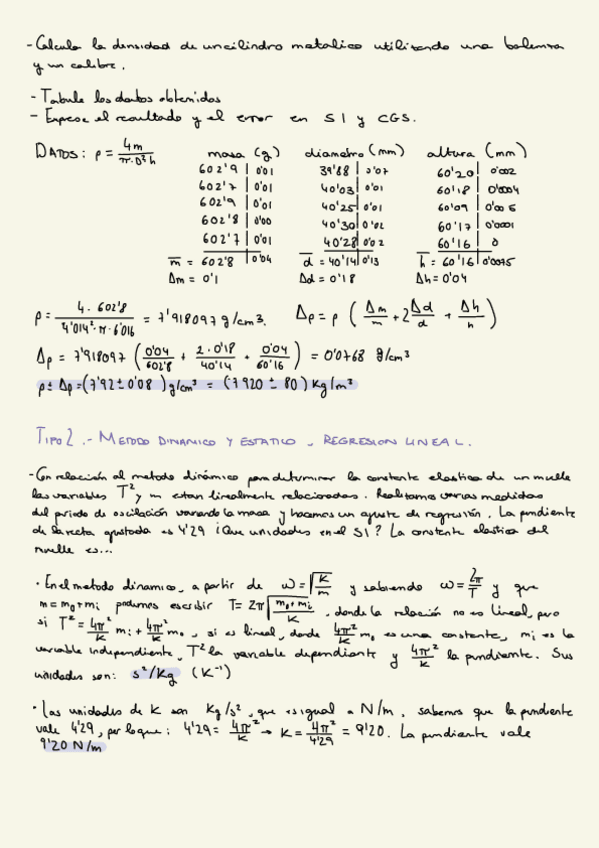 - Calcula la densidad de un cilindro metalico utilizando una balanza
y un calibre.
- Tabule los datos obtenidos
- Exprese el resultado y el error en SI y CGS.
DATOS: ρ = 4m / π·D²h
masa (g) diametro (mm) altura (mm)
602'9 | 0'01 39'88 | 0'07 60'20 | 0'002
602'7 | 0'01 40'03 | 0'01 60'18 | 0'0004
602'9 | 0'01 40'25 | 0'01 60'09 | 0'005
602'8 | 0'00 40'30 | 0'02 60'17 | 0'0001
602'7 | 0'01 40'28 | 0'02 60'16 | 0
m̅ = 602'8 | 0'04 d̅ = 40'14 | 0'13 h̅ = 60'16 | 0'0075
Δm = 0'1 Δd = 0'18 Δh = 0'04
ρ = 4 · 602'8 / 4'014²·π·6'016 = 7'918097 g/cm³. Δρ = ρ (Δm/m + 2Δd/d + Δh/h)
Δρ = 7'918097 (0'04/602'8 + 2·0'18/40'14 + 0'04/60'16) = 0'0768 g/cm³
ρ ± Δρ = (7'92 ± 0'08) g/cm³ = (7920 ± 80) Kg/m³
TIPO 2 .- METODO DINAMICO Y ESTATICO , REGRESION LINEAL.
- Con relación al metodo dinámico para determinar la constante elastica de un muelle
las variables T² y m estan linealmente relacionadas. Realizamos varias medidas
del periodo de oscilación variando la masa y hacemos un ajuste de regresión. La pendiente
de la recta ajustada es 4'29 ¿Que unidades en el SI? La constante elastica del
muelle es...
· En el metodo dinamico, a partir de ω = √K/m y sabiendo ω = 2π/T y que
m = m₀ + mᵢ podemos escribir T = 2π√m₀+mᵢ/K , donde la relación no es lineal, pero
si T² = 4π²/K mᵢ + 4π²/K m₀ , si es lineal, donde 4π²/K m₀ es una constante, mᵢ es la
variable independiente, T² la variable dependiante y 4π²/K la pendiente. Sus
unidades son: s²/Kg (K⁻¹)
· Las unidades de K son Kg/s², que es igual a N/m, sabemos que la pendiente
vale 4'29, por lo que: 4'29 = 4π²/K → K = 4π²/4'29 = 9'20. La pendiente vale
9'20 N/m